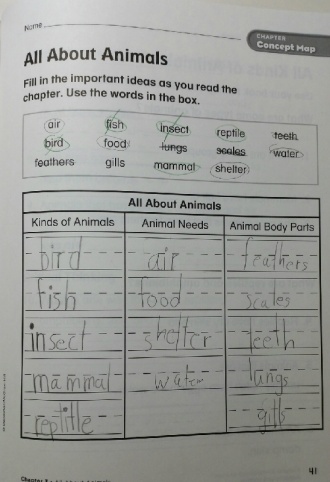 Name
CHAPTER
Concept Map
All About Animals
Fill in the important ideas as you read the
chapter. Use the words in the box.
air fish insect reptile teeth
bird food lungs scales water
feathers gills mammal shelter
All About Animals
Kinds of Animals Animal Needs Animal Body Parts
bird air feathers
fish food scales
insect shelter teeth
mammal water lungs
reptitle gills
41